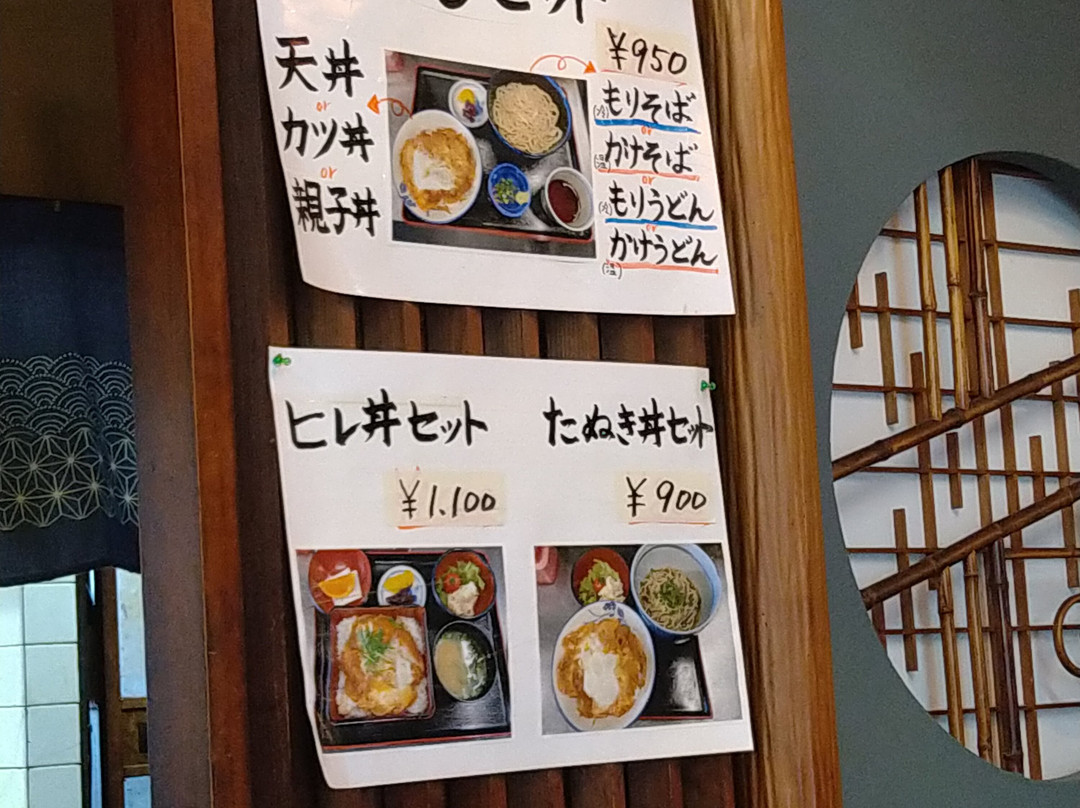 天丼
or
カツ丼
or
親子丼
¥950
(冷)もりそば
or
(温)かけそば
or
(冷)もりうどん
or
かけうどん
(温)
ヒレ丼セット
¥1.100
たぬき丼セット
¥900